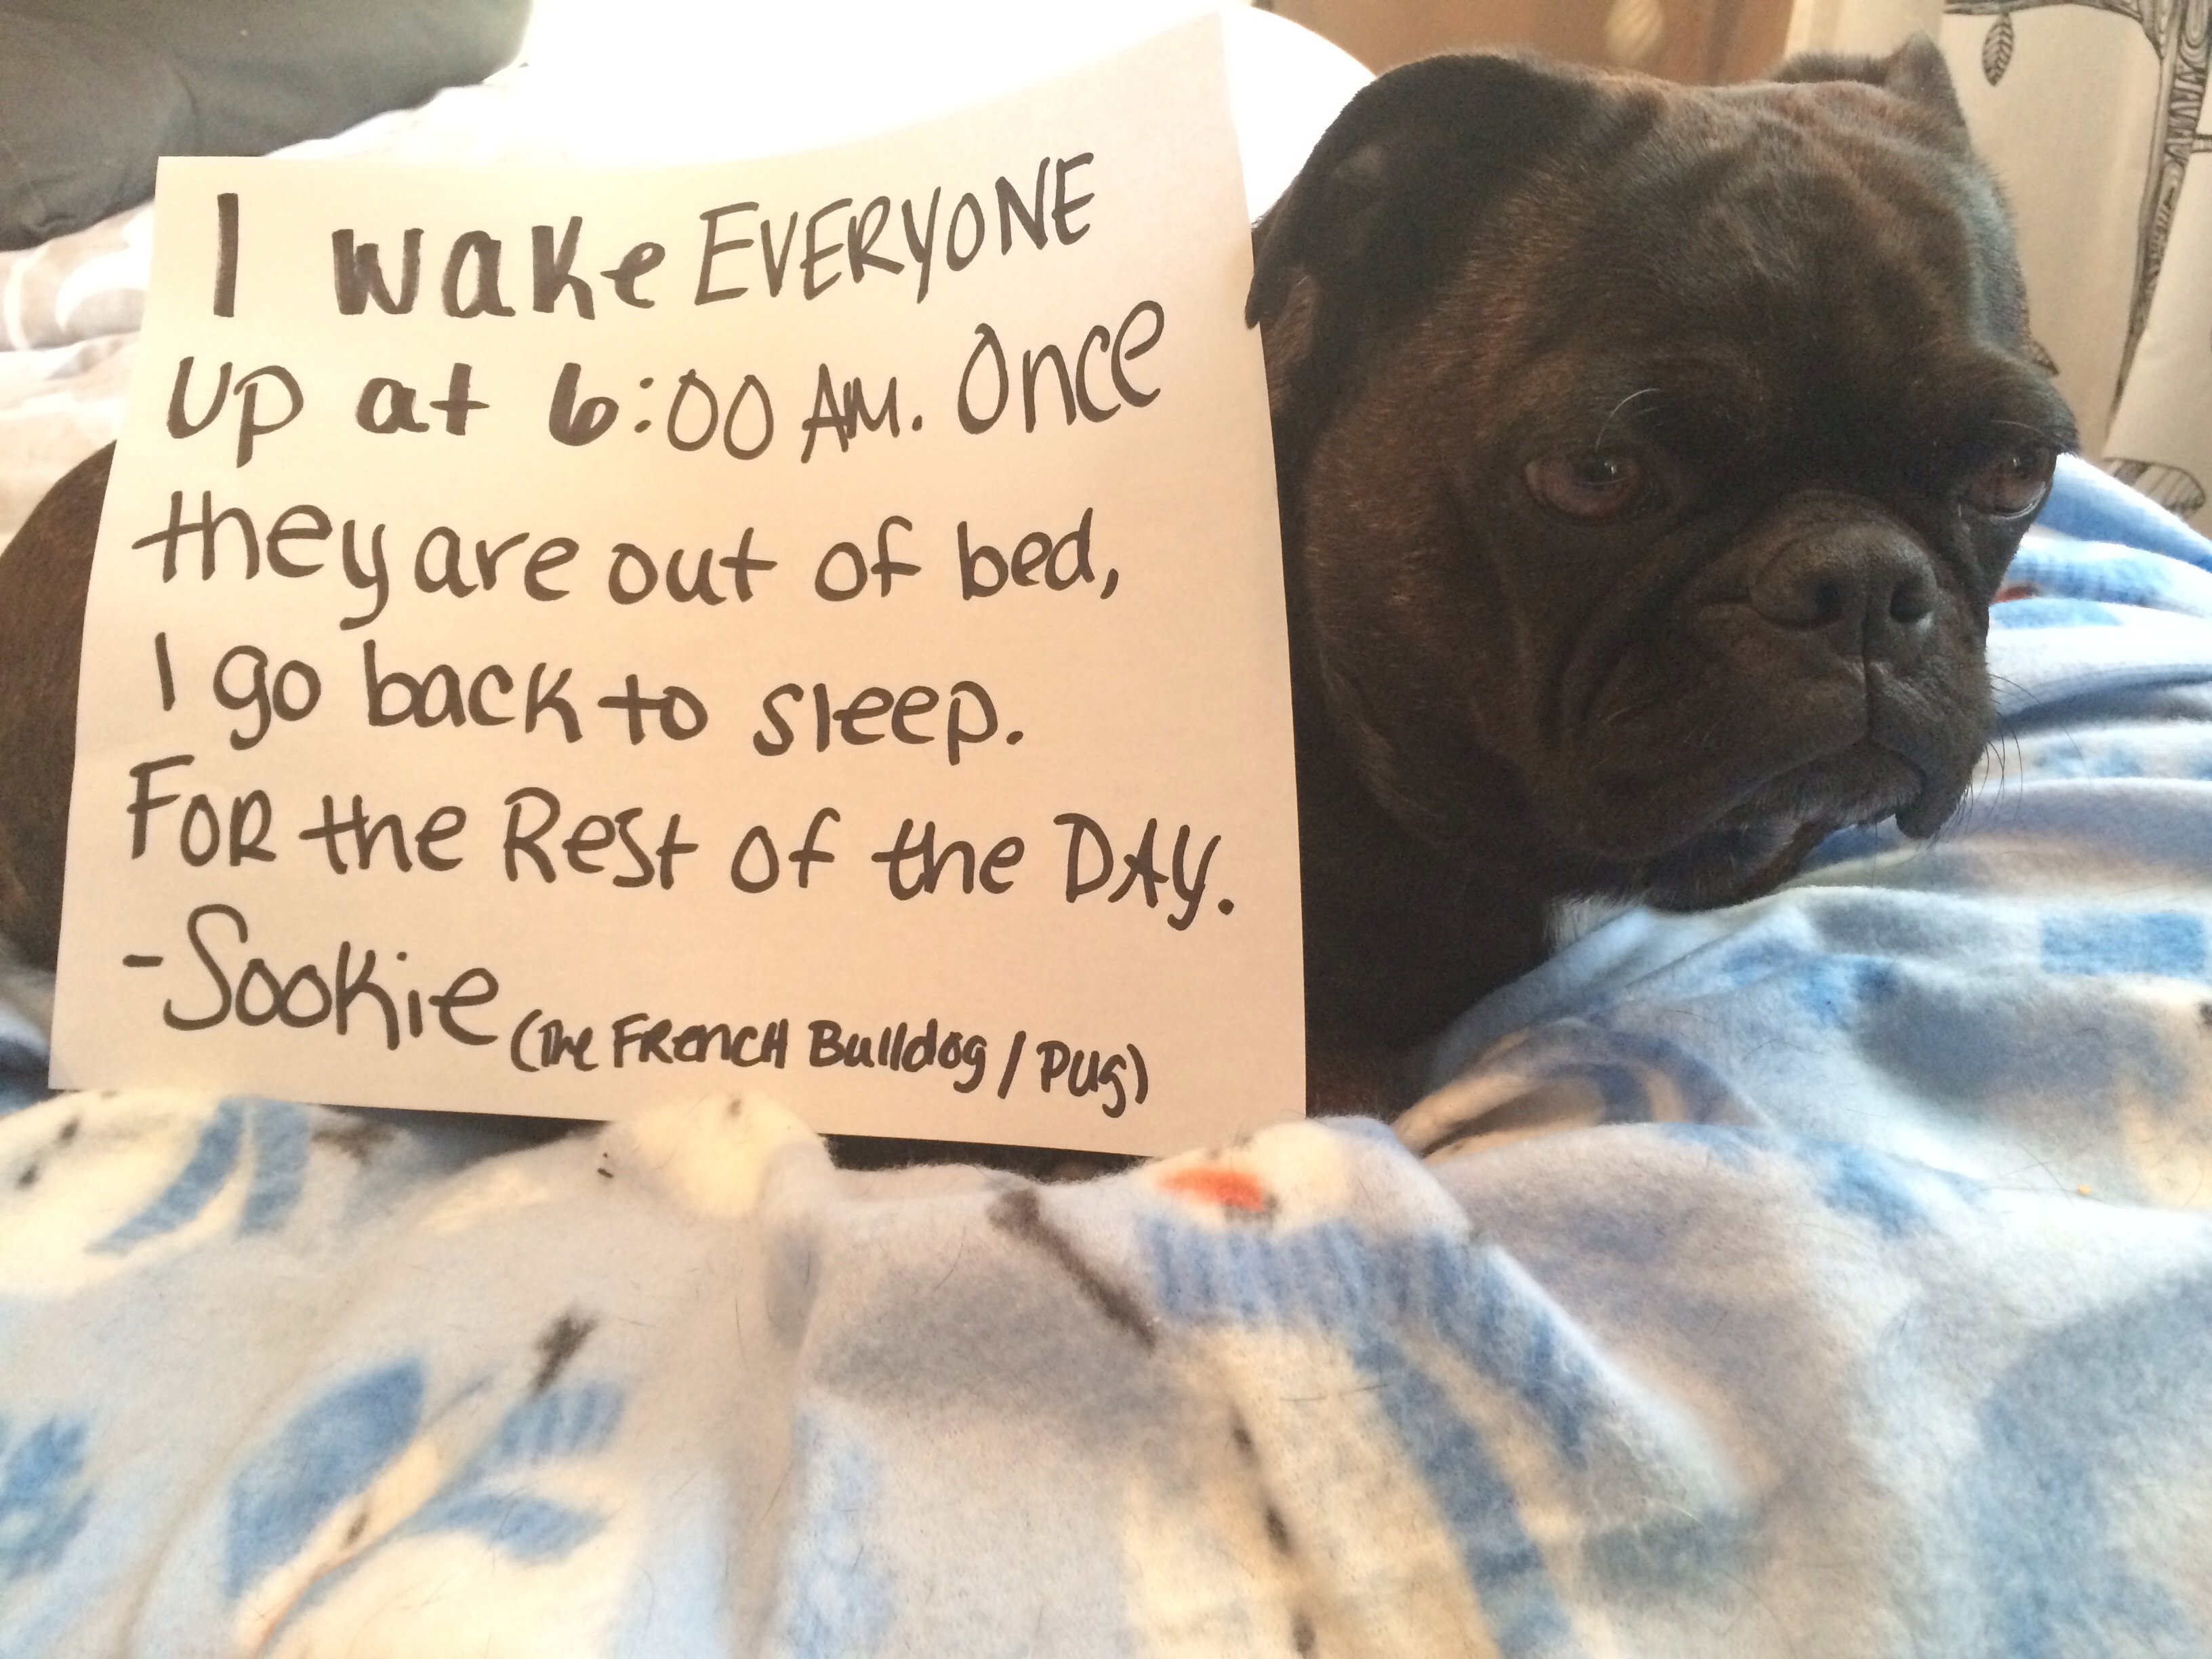 I wake EVERYONE
UP at 6:00 AM. Once
they are out of bed,
I go back to sleep.
FOR the Rest of the DAY.
-Sookie (The FRENCH Bulldog / PUG)